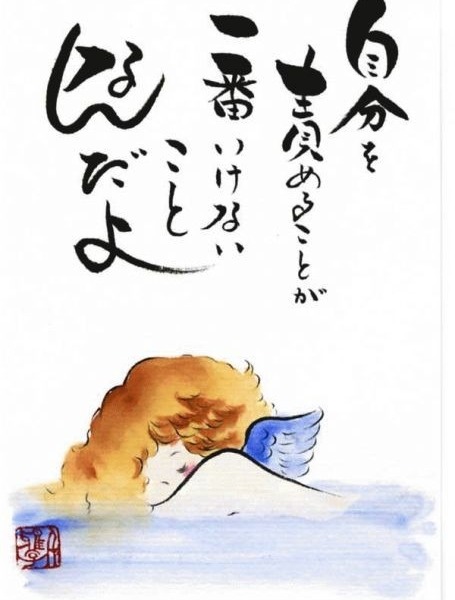 自分を
責めることが
一番いけない
こと
なんだよ